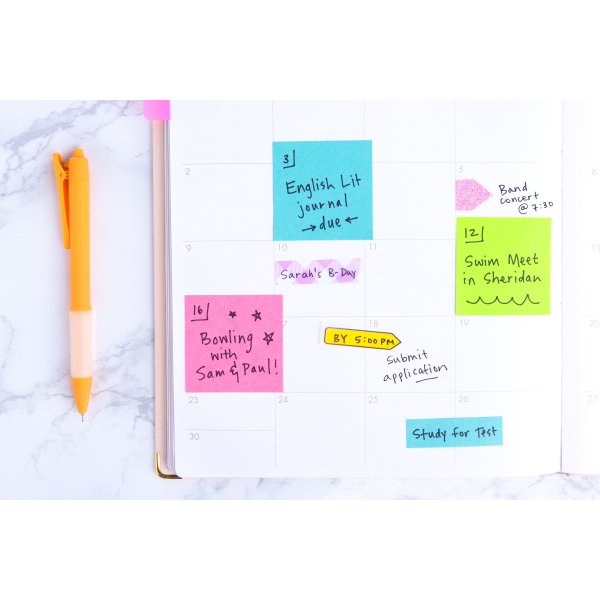 2
3
English Lit
journal
→due←
5
Band
concert
@ 7:30
9
10
Sarah's B-Day
11
12
Swim Meet
in Sheridan
16
Bowling
with
Sam & Paul!
17
BY 5:00PM
18
Submit
application
19
20
23
24
25
26
27
Study for Test
30